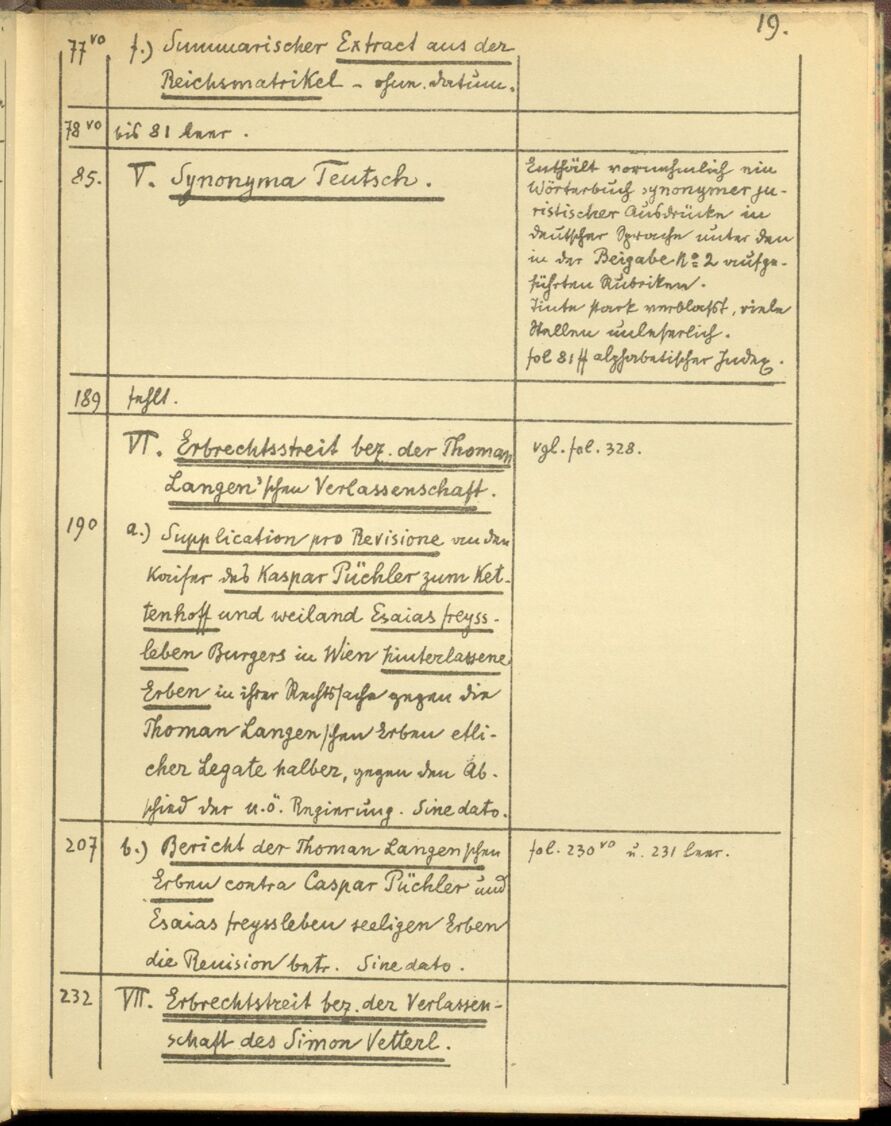 19.
77 vo f.) Summarischer Extract aus der
Reichsmatrikel - ohne datum.
78 vo bis 81 leer.
85. V. Synonyma Teutsch.
Enthält vornehmlich ein
Wörterbuch synonymer ju-
ristischer Ausdrücke in
deutscher Sprache unter den
in der Beigabe No 2 aufge-
führten Rubriken.
Tinte stark verblaßt, viele
Stellen unleserlich.
fol 81 ff alphabetischer Index.
189 fehlt.
VI. Erbrechtsstreit bez. der Thoman
Langen'schen Verlassenschaft.
vgl. fol. 328.
190 a.) Supplication pro Revisione an den
Kaiser des Kaspar Püchler zum Ket-
tenhoff und weiland Esaias freyss-
leben Burgers in Wien hinterlassene
Erben in ihrer Rechtssache gegen die
Thoman Langen'schen Erben etli-
cher Legate halber, gegen den Ab-
schied der n.ö. Regierung. Sine dato.
207 b.) Bericht der Thoman Langen'schen
Erben contra Caspar Püchler und
Esaias freyssleben seeligen Erben
die Revision betr. Sine dato.
fol. 230 vo u. 231 leer.
232 VII. Erbrechtstreit bez. der Verlassen-
schaft des Simon Vetterl.